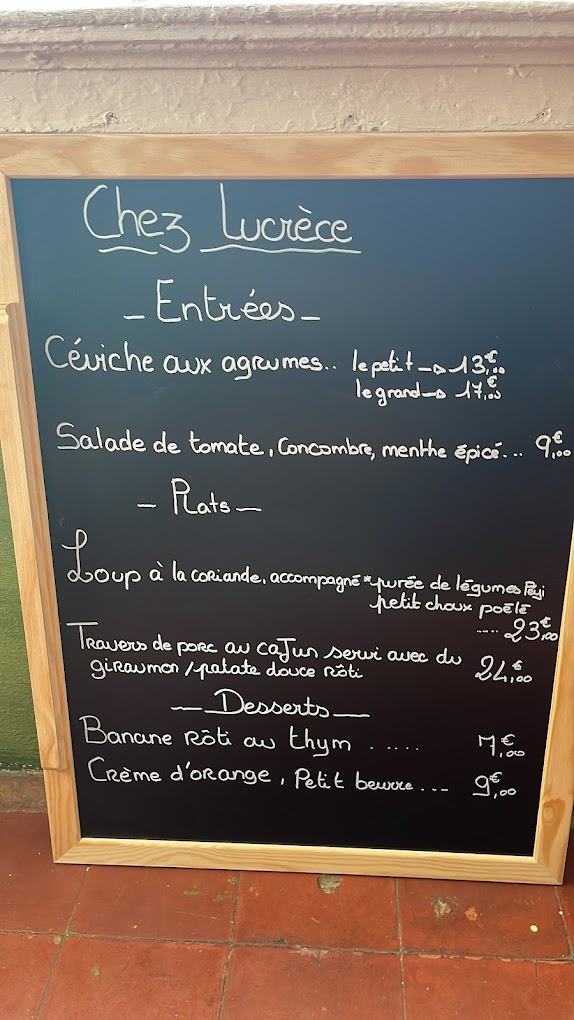 Chez Lucrèce
- Entrées -
Céviche aux agrumes.. le petit → 13,€00
le grand → 17,€00
Salade de tomate, Concombre, menthe épicé... 9,€00
- Plats -
Loup à la coriande, accompagné * purée de légumes Peyi
petit choux poêlé
.... 23,€00
Travers de porc au caJun servi avec du
giraumon / patate douce rôti 24,€00
- Desserts -
Banane Rôti au thym ..... 7,€00
Crème d'orange, Petit beurre ... 9,€00